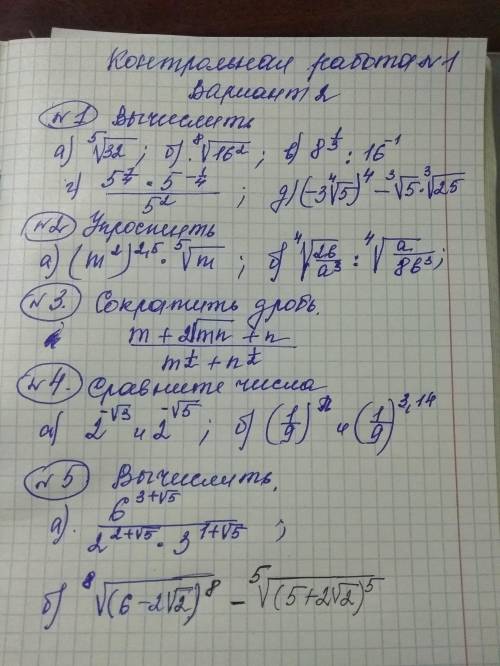 Контрольная работа №1
Вариант 2
№1 Вычислить
а) ⁵√32; б) ⁸√16²; в) 8^(1/3) : 16⁻¹
г) (5^(1/4) · 5^(-1/4)) / 5²; д) (-3⁴√5)⁴ - ³√5 · ³√25
№2 Упростить
а) (m²)^2,5 · ⁵√m; б) ⁴√(2b/a³) : ⁴√(a/8b³);
№3. Сократить дробь.
(m + 2√mn + n) / (m^(1/2) + n^(1/2))
№4. Сравните числа
а) 2^(-√3) и 2^(-√5); б) (1/9)^π и (1/9)^3,14
№5 Вычислить.
а). 6^(3+√5) / (2^(2+√5) · 3^(1+√5));
б) ⁸√(6-2√2)⁸ - ⁵√(5+2√2)⁵